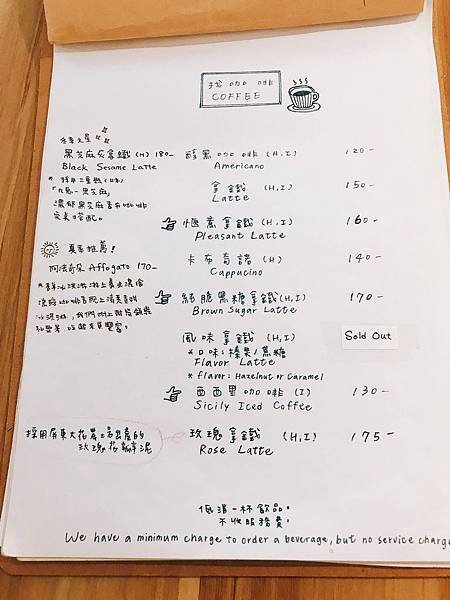 找咖啡
COFFEE
冬季之星
黑芝麻灰拿鐵 (H) 180-
Black Sesame Latte
「九鬼-黑芝麻」
濃郁黑芝麻香和咖啡
完美搭配。
夏季推薦!
阿法奇朵 Affogato 170-
醇黑咖啡 (H,I) 120-
Americano
拿鐵 (H,I) 150-
Latte
愜意拿鐵 (H,I) 160-
Pleasant Latte
卡布奇諾 (H) 140-
Cappucino
結脆黑糖拿鐵 (H,I) 170-
Brown Sugar Latte
風味拿鐵 (H,I) Sold Out
*口味:榛果/焦糖
Flavor Latte
*flavor: Hazelnut or Caramel
西西里咖啡 (I) 130-
Sicily Iced Coffee
採用屏東大花農場出產的
玫瑰花瓣泥
玫瑰拿鐵 (H,I) 175-
Rose Latte
低消一杯飲品。
不收服務費。
We have a minimum charge to order a beverage, but no service charge